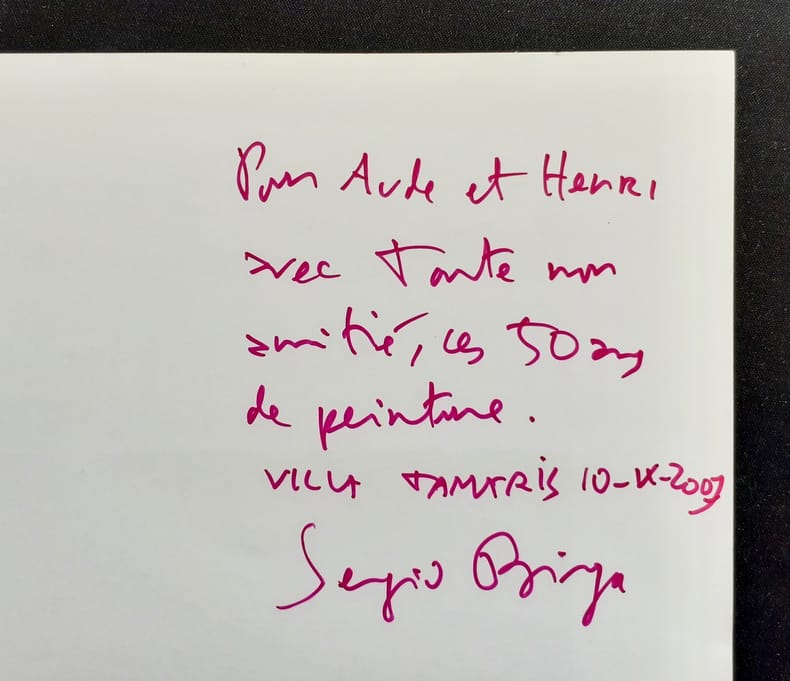 Pour Aude et Henri
avec toute mon
amitié, ces 50 ans
de peinture.
VILLA TAMARIS 10-IX-2009
Sergio Birga